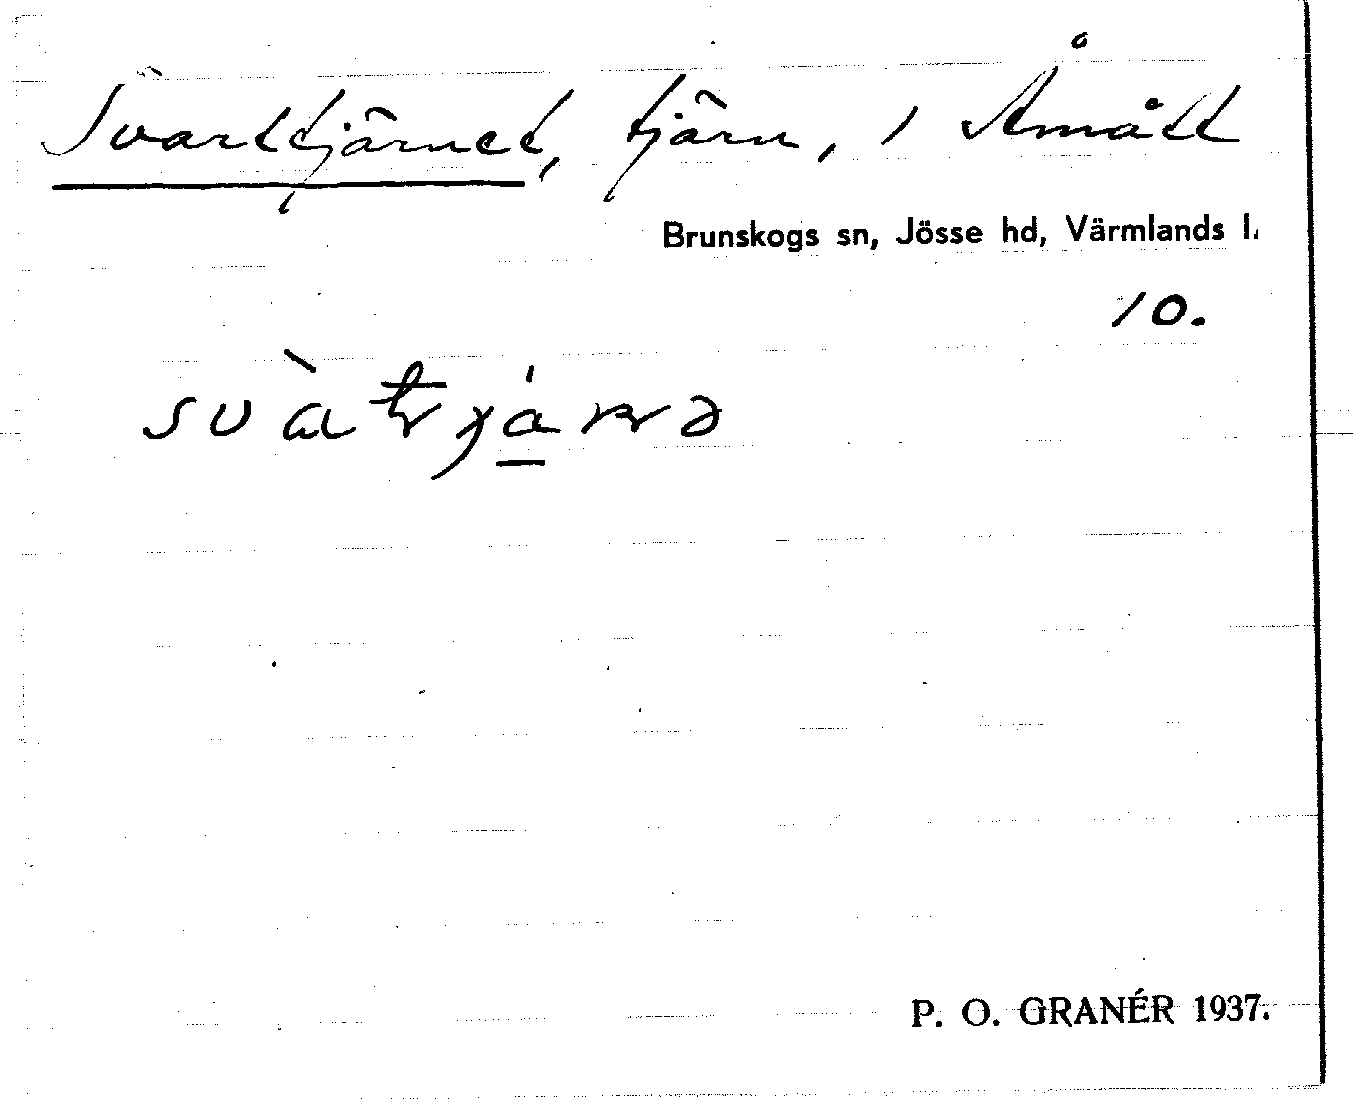 Svarttjärnet, tjärn, i Åmått
Brunskogs sn, Jösse hd, Värmlands l.
10.
P. O. GRANÉR 1937.